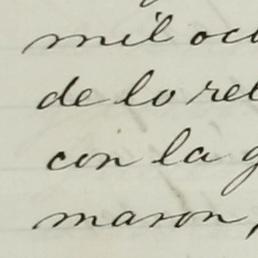 mil oc
de lo rel
con la g
maron,